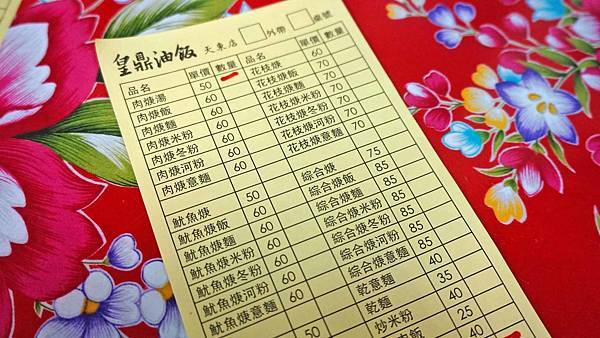 皇鼎油飯 天東店 外帶 桌號
品名 單價 數量 品名 單價 數量
肉焿湯 50 花枝焿 60
肉焿飯 60 花枝焿飯 70
肉焿麵 60 花枝焿麵 70
肉焿米粉 60 花枝焿米粉 70
肉焿冬粉 60 花枝焿冬粉 70
肉焿河粉 60 花枝焿河粉 70
肉焿意麵 60 花枝焿意麵 70
魷魚焿 50 綜合焿 75
魷魚焿飯 60 綜合焿飯 85
魷魚焿麵 60 綜合焿麵 85
魷魚焿米粉 60 綜合焿米粉 85
魷魚焿冬粉 60 綜合焿冬粉 85
魷魚焿河粉 60 綜合焿河粉 85
魷魚焿意麵 60 綜合焿意麵 85
乾意麵 40
50 乾麵 35
炒米粉 40
肉飯 25
40